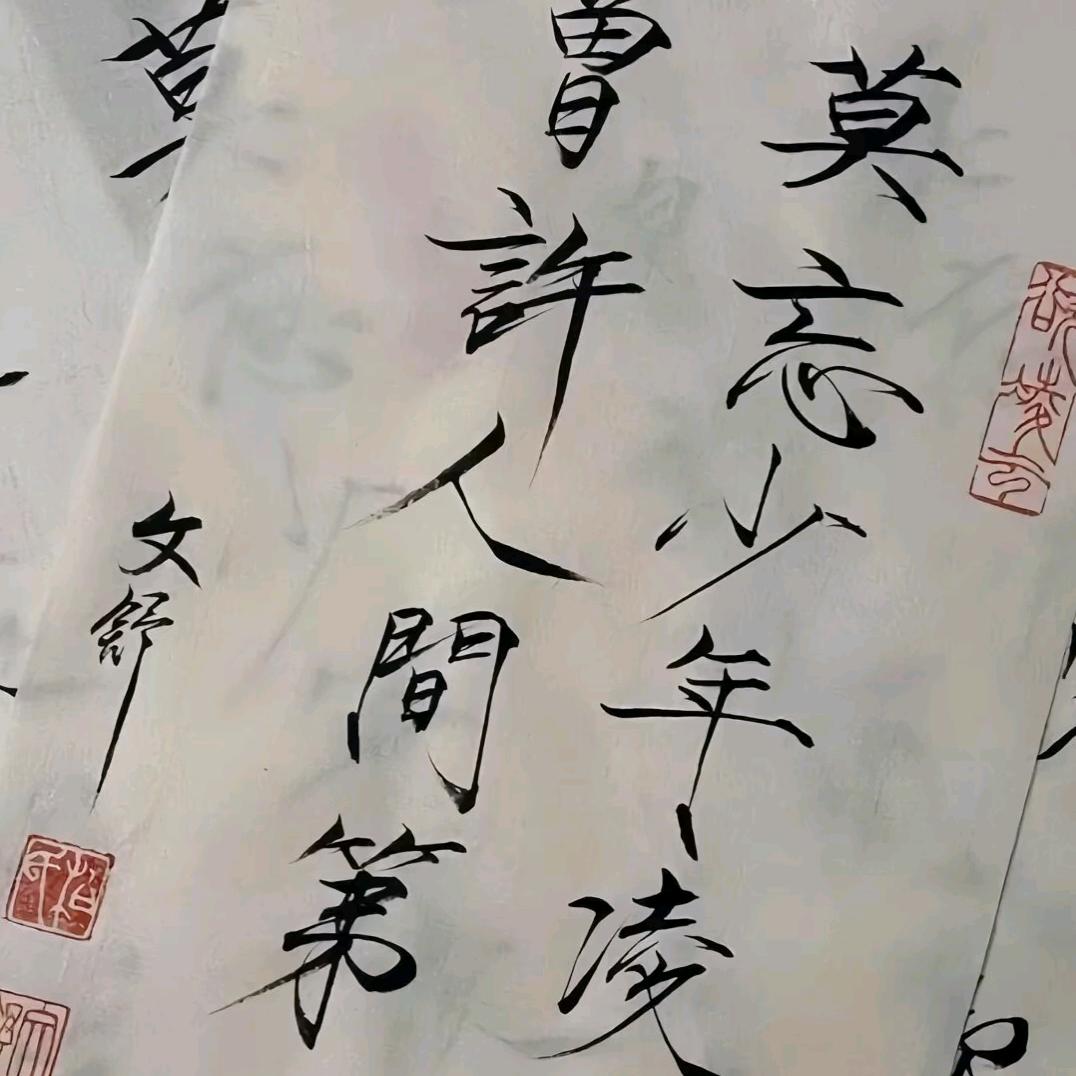 莫忘少年凌
曾許人間第
文舒
莫